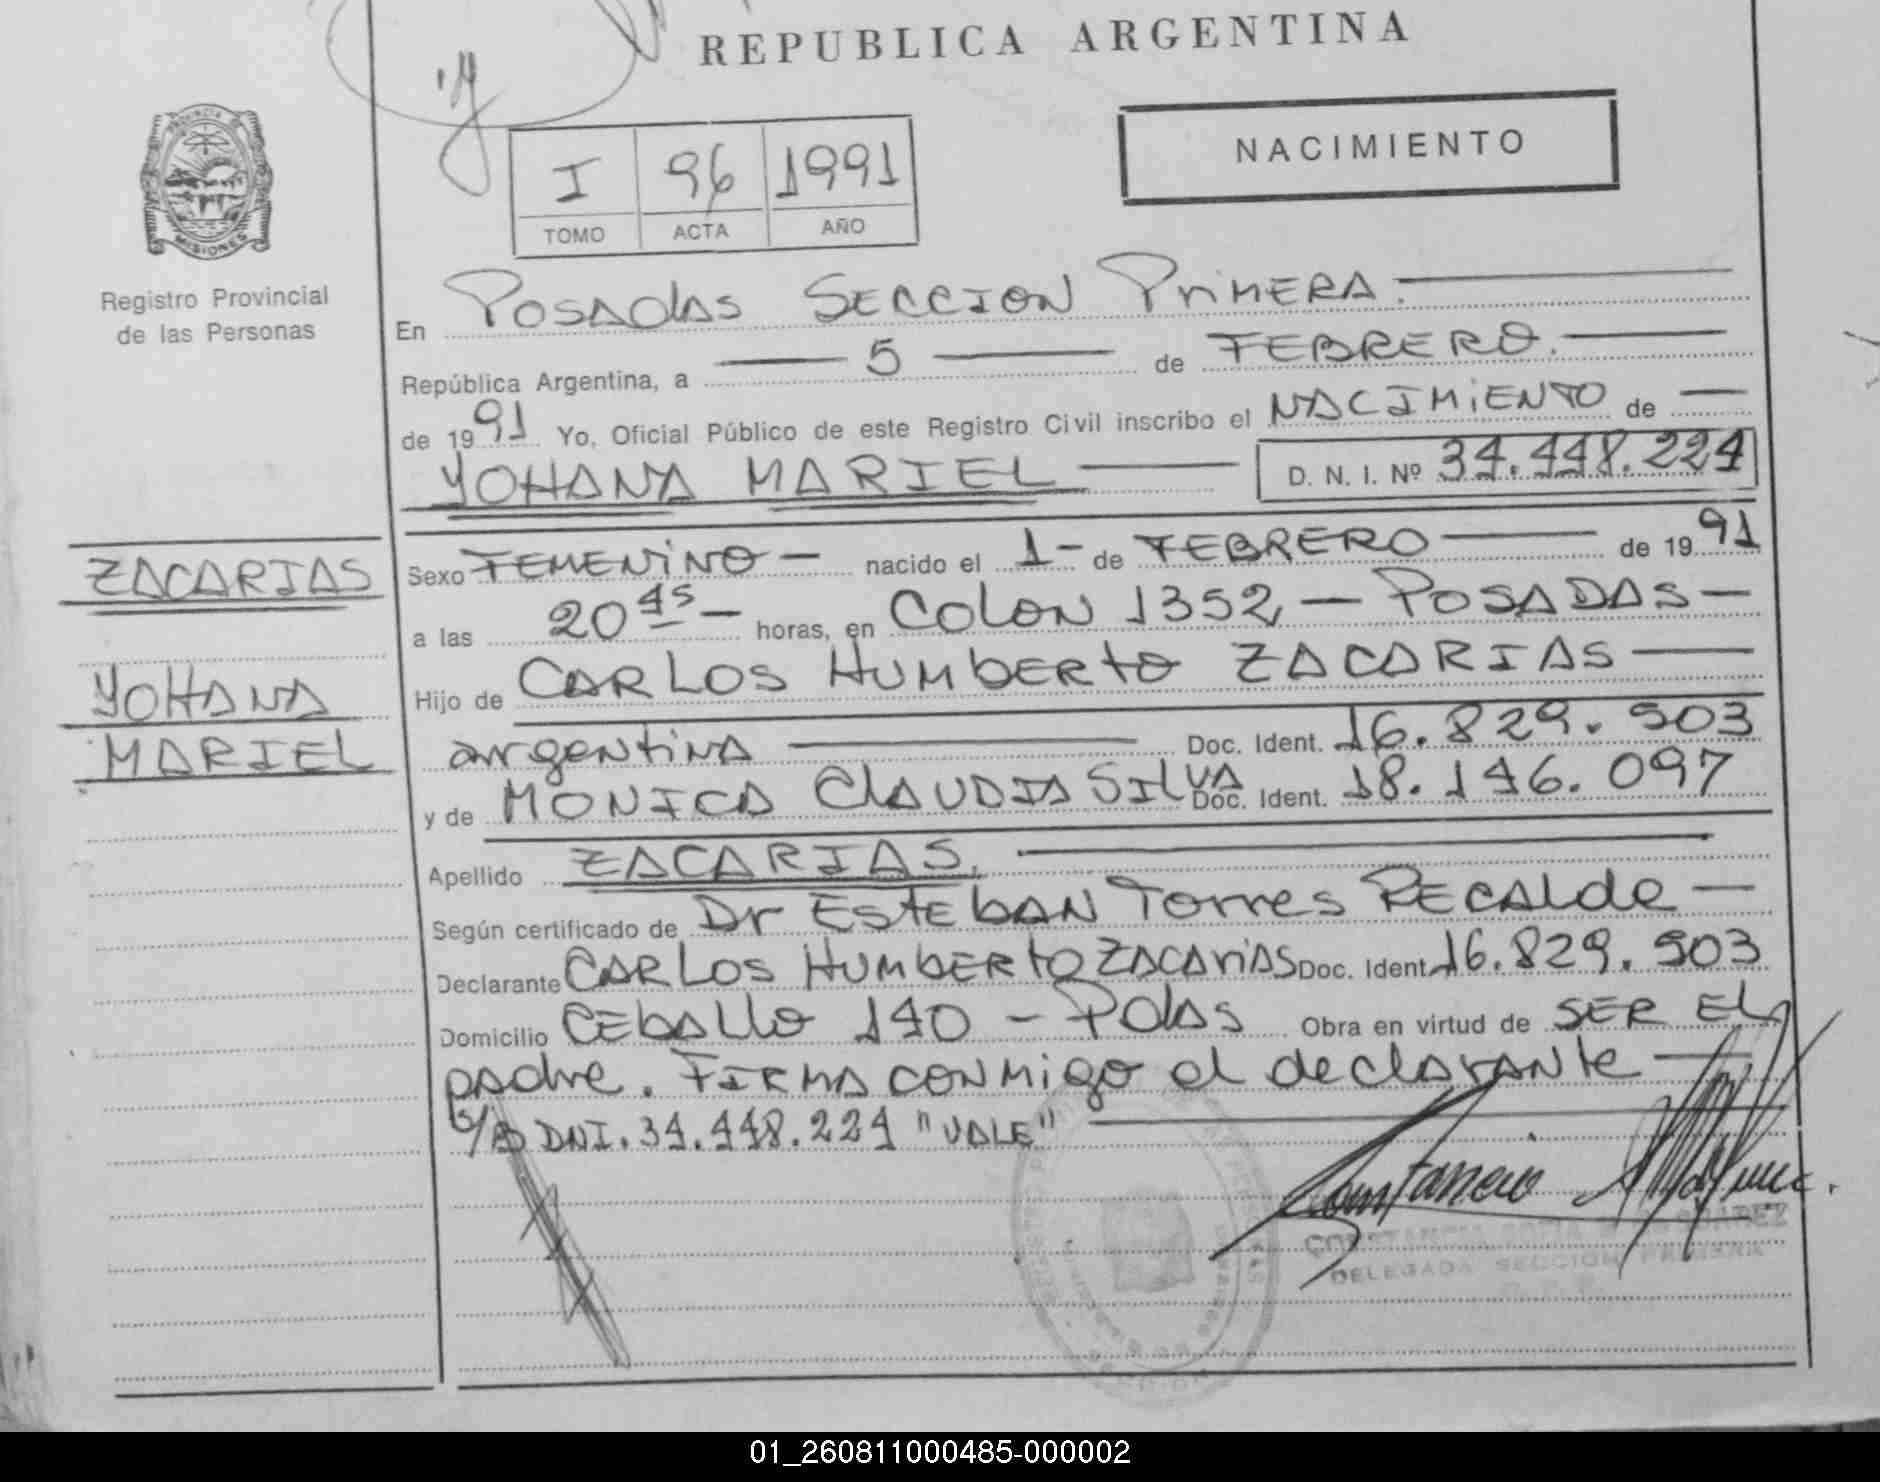 REPUBLICA ARGENTINA
PROVINCIA DE
MISIONES
Registro Provincial
de las Personas
I 96 1991
TOMO ACTA AÑO
NACIMIENTO
En POSADAS SECCION PRIMERA.
República Argentina, a 5 de FEBRERO.
de 1991 Yo, Oficial Público de este Registro Civil inscribo el NACIMIENTO de
YOHANA MARIEL D. N. I. Nº 34.448.224
ZACARIAS
YOHANA
MARIEL
Sexo FEMENINO nacido el 1 de FEBRERO de 1991
a las 20 45 horas, en COLON 1352 - POSADAS
Hijo de CARLOS HUMBERTO ZACARIAS
argentina Doc. Ident. 16.829.503
y de MONICA CLAUDIA SILVA Doc. Ident. 18.146.097
Apellido ZACARIAS.
Según certificado de Dr ESTEBAN Torres RECALDE
Declarante CARLOS HUMBERTO ZACARIAS Doc. Ident. 16.829.503
Domicilio CEBALLO 140 - Pdas Obra en virtud de SER EL
padre. FIRMA CONMIGO el declarante
S/B DNI. 34.448.224 "VALE"
CONSTANCIA SOFIA DE SUAREZ
DELEGADA SECCION PRIMERA
01_260811000485-000002